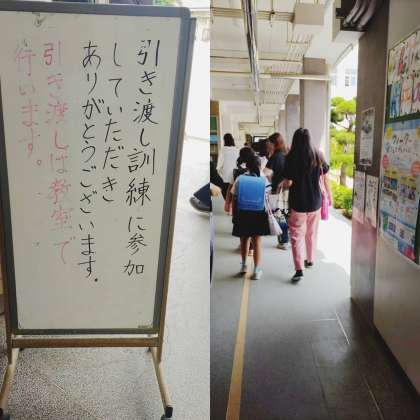 引き渡し訓練に参加
していただき
ありがとうございます.
引き渡しは教室で
行います。